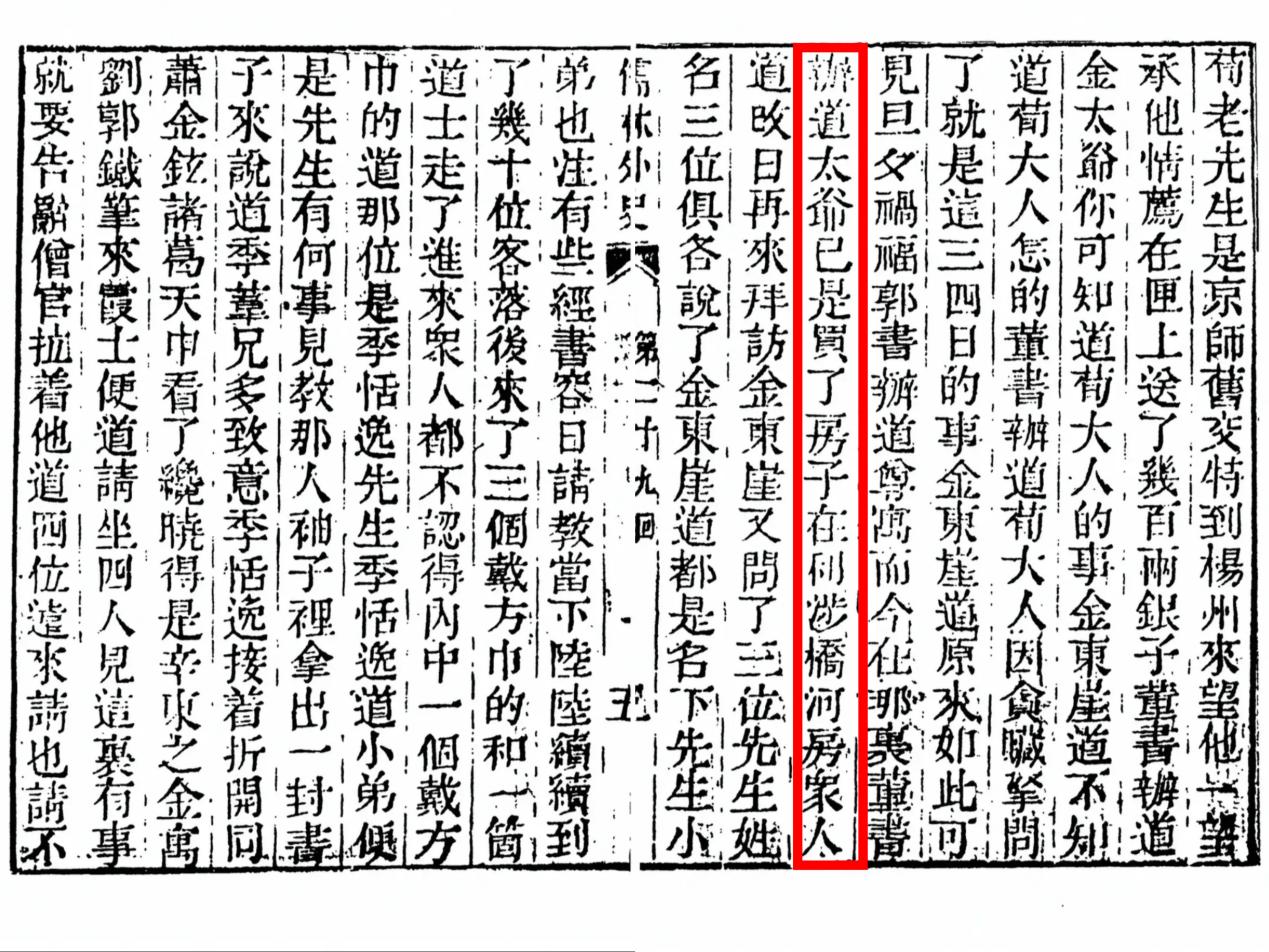 荀老先生是京師舊交特到楊州來望他一望
承他情薦在匣上送了幾百兩銀子董書辦道
金太爺你可知道荀大人的事金東崖道不知
道荀大人怎的董書辦道荀大人因貪贓拏問
了就是這三四日的事金東崖道原來如此可
見旦夕禍福郭書辦道尊寓而今在那裏董書
辦道太爺已是買了房子在利涉橋河房衆人
道改日再來拜訪金東崖又問了三位先生姓
名三位俱各說了金東崖道都是名下先生小
儒林外史 第二十九回 五
弟也注有些經書容日請教當下陸陸續續到
了幾十位客落後來了三個戴方巾的和一箇
道士走了進來衆人都不認得內中一個戴方
巾的道那位是季恬逸先生季恬逸道小弟便
是先生有何事見教那人袖子裡拿出一封書
子來說道季葦兄多致意季恬逸接着折開同
蕭金鉉諸葛天申看了纔曉得是辛東之金寓
劉郭鐵筆來霞士便道請坐四人見這裏有事
就要告辭僧官拉着他道四位遠來請也請不